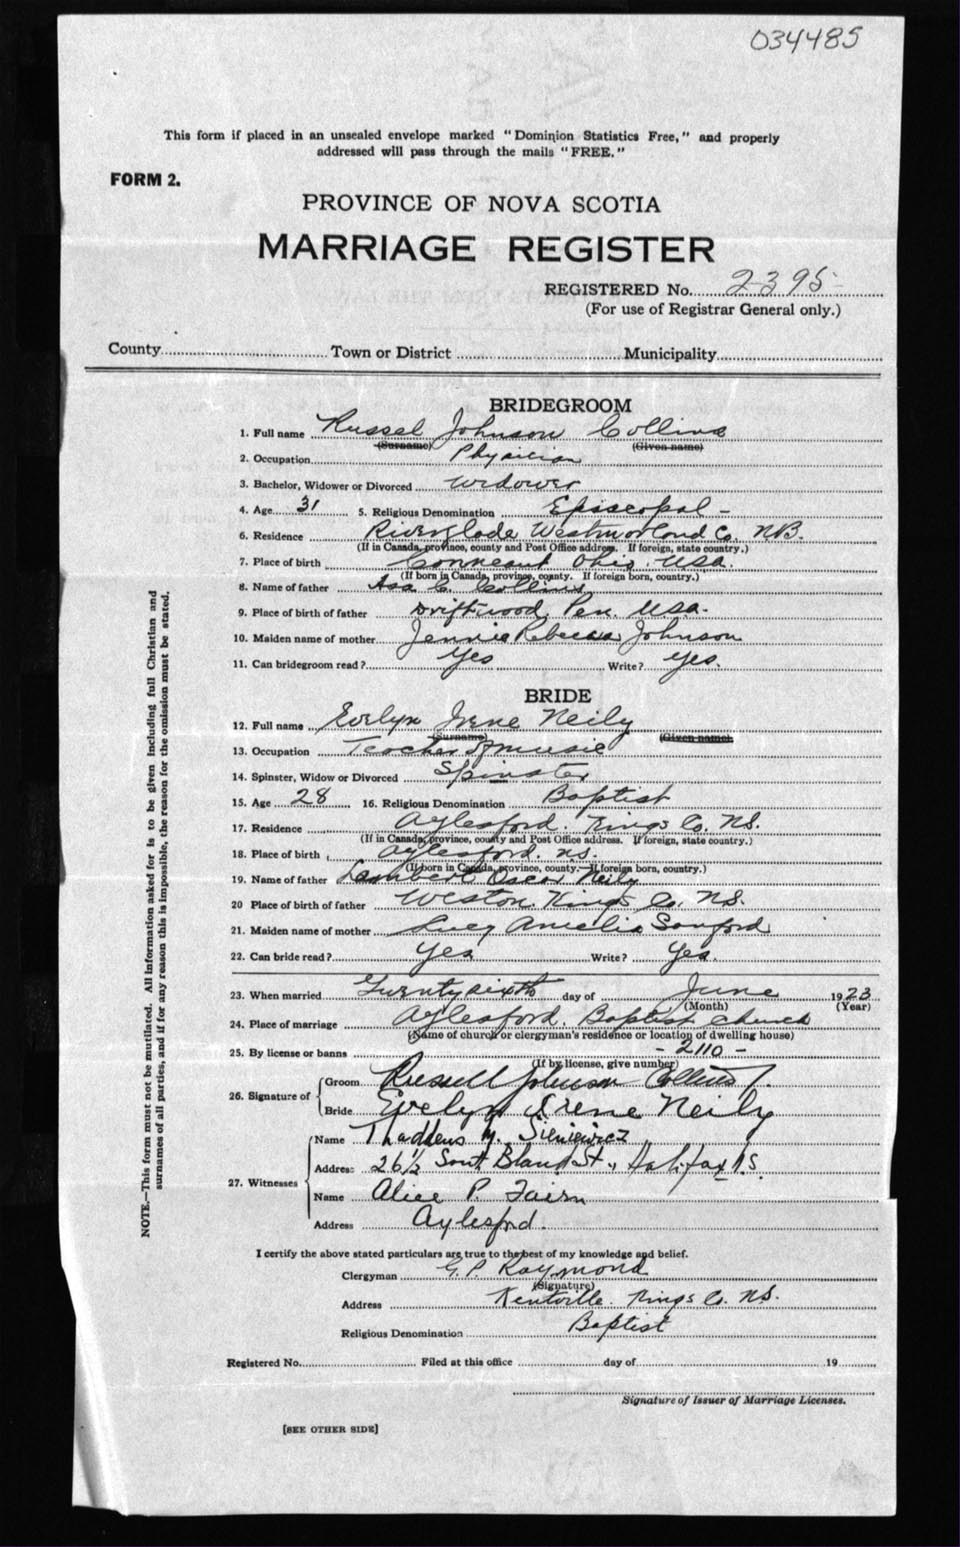 034485
This form if placed in an unsealed envelope marked "Dominion Statistics Free," and properly
addressed will pass through the mails "FREE."
FORM 2.
PROVINCE OF NOVA SCOTIA
MARRIAGE REGISTER
REGISTERED No. 2395
(For use of Registrar General only.)
County Town or District Municipality
BRIDEGROOM
1. Full name Russel Johnson Collins
(Surname) (Given name)
2. Occupation Physician
3. Bachelor, Widower or Divorced Widower
4. Age 31 5. Religious Denomination Episcopal -
6. Residence Riverglade Westmorland Co. N.B.
(If in Canada, province, county and Post Office address. If foreign, state country.)
7. Place of birth Conneaut Ohio. USA.
(If born in Canada, province, county. If foreign born, country.)
8. Name of father Asa C. Collins
9. Place of birth of father Driftwood, Pen. USA.
10. Maiden name of mother Jennie Rebecca Johnson
11. Can bridegroom read? Yes Write? Yes.
BRIDE
12. Full name Evelyn Irene Neily
(Surname) (Given name)
13. Occupation Teacher of music
14. Spinster, Widow or Divorced Spinster
15. Age 28 16. Religious Denomination Baptist
17. Residence Aylesford. Kings Co. N.S.
(If in Canada, province, county and Post Office address. If foreign, state country.)
18. Place of birth Aylesford. N.S.
(If born in Canada, province, county.—If foreign born, country.)
19. Name of father Lambert Oscar Neily
20 Place of birth of father Weston. Kings Co. N.S.
21. Maiden name of mother Lucy Amelia Sanford
22. Can bride read? Yes Write? Yes.
23. When married Twenty sixth day of June 1923
(Month) (Year)
24. Place of marriage Aylesford, Baptist Church
(Name of church or clergyman's residence or location of dwelling house)
25. By license or banns - 2110 -
(If by license, give number)
26. Signature of Groom Russell Johnson Collins
Bride Evelyn Irene Neily
27. Witnesses Name Thaddeus M. Sieniewicz
Address 26½ South Bland St., Halifax N.S.
Name Alice P. Fairn
Address Aylesford.
I certify the above stated particulars are true to the best of my knowledge and belief.
Clergyman G. P. Raymond
(Signature)
Address Kentville. Kings Co. N.S.
Religious Denomination Baptist
Registered No. Filed at this office day of 19
Signature of Issuer of Marriage Licenses.
[SEE OTHER SIDE]
NOTE.—This form must not be mutilated. All information asked for is to be given including full Christian and
surnames of all parties, and if for any reason this is impossible, the reason for the omission must be stated.